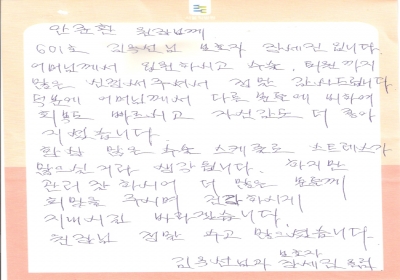 안준환 원장님께
601호 김용선님 보호자 장세진입니다.
어머님께서 입원하시고 수술, 퇴원까지
많은 신경써주셔서 정말 감사드립니다
덕분에 어머님께서 다른 분들에 비하여
회복도 빠르시고 자신감도 더 좋아
지셨습니다.
항상 많은 수술 스케줄로 스트레스가
많으신거라 생각됩니다. 하지만
관리 잘 하시어 더 많은 분들께
희망을 주시며 건강하시게
지내시길 바라겠습니다.
원장님 정말 수고 많으셨습니다.
김용선님과 보호자 장세진 올림